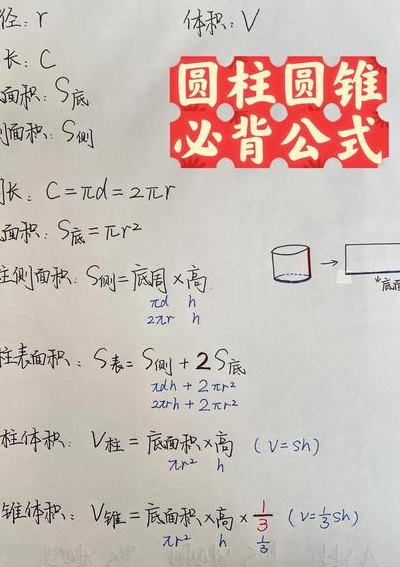 径: r
体积: V
长: C
面积: S底
侧面积: S侧
圆柱圆锥
必背公式
长: C=πd=2πr
面积: S底=πr²
柱侧面积: S侧=底周×高
πd h
2πr h
底面
柱表面积: S表=S侧+2S底
πdh+2πr²
2πrh+2πr²
柱体积: V柱=底面积×高 (V=sh)
πr² h
锥体积: V锥=底面积×高×1/3 (V=1/3sh)
πr² h 1/3